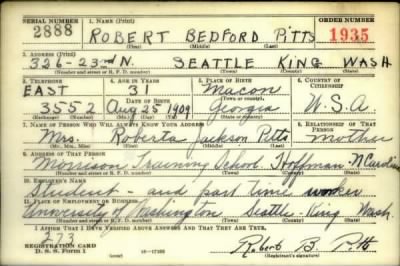 SERIAL NUMBER 1. NAME (Print) ORDER NUMBER
2888 ROBERT BEDFORD PITTS 1935
(First) (Middle) (Last)
2. ADDRESS (Print)
326-23rd N. SEATTLE KING WASH
(Number and street or R. F. D. number) (Town) (County) (State)
3. TELEPHONE 4. AGE IN YEARS 5. PLACE OF BIRTH 6. COUNTRY OF CITIZENSHIP
EAST 31 Macon
DATE OF BIRTH (Town or county)
3552 Aug 25 1909 Georgia U.S.A
(Exchange) (Number) (Mo.) (Day) (Yr.) (State or country)
7. NAME OF PERSON WHO WILL ALWAYS KNOW YOUR ADDRESS 8. RELATIONSHIP OF THAT PERSON
Mrs. Roberta Jackson Pitts mother
(Mr., Mrs., Miss) (First) (Middle) (Last)
9. ADDRESS OF THAT PERSON
Morrison Training School Hoffman N Carolina
(Number and street or R. F. D. number) (Town) (County) (State)
10. EMPLOYER'S NAME
Student - and part time worker
11. PLACE OF EMPLOYMENT OR BUSINESS
University of Washington Seattle King Wash.
(Number and street or R. F. D. number) (Town) (County) (State)
I AFFIRM THAT I HAVE VERIFIED ABOVE ANSWERS AND THAT THEY ARE TRUE.
273
REGISTRATION CARD
D. S. S. Form 1 (over) Robert B. Pitts
(Registrant's signature)